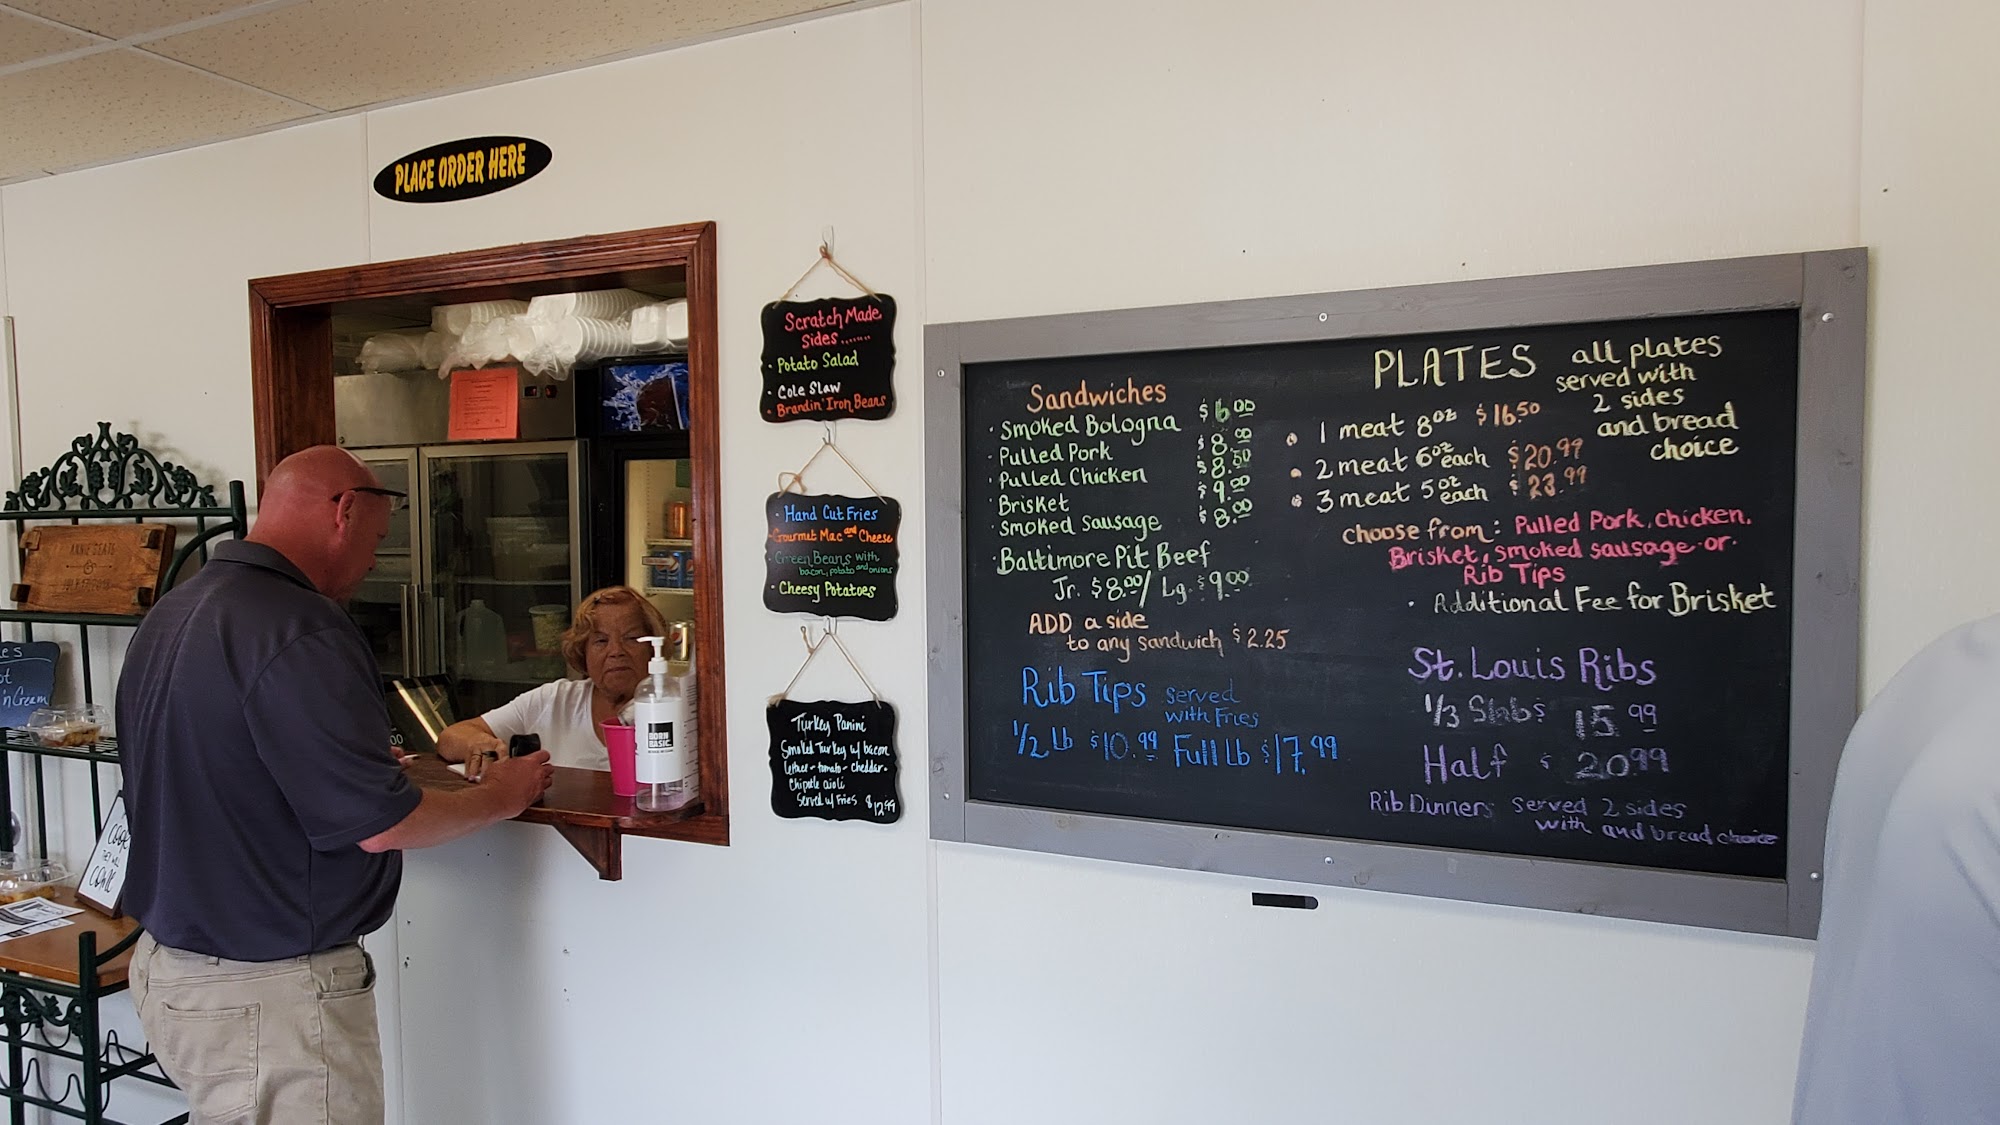 PLACE ORDER HERE
Scratch Made
Sides........
• Potato Salad
• Cole Slaw
• Brandin' Iron Beans
• Hand Cut Fries
• Gourmet Mac and Cheese
• Green Beans with
bacon, potato and onions
• Cheesy Potatoes
Turkey Panini
Smoked Turkey w/ bacon
lettuce - tomato - cheddar -
Chipotle aioli
Served w/ Fries $12.99
Sandwiches
• Smoked Bologna $6.00
• Pulled Pork $8.00
• Pulled Chicken $8.50
• Brisket $9.00
• Smoked Sausage $8.00
• Baltimore Pit Beef
Jr. $8.00/ Lg. $9.00
ADD a side
to any sandwich $2.25
Rib Tips served
with Fries
1/2 Lb $10.99 Full Lb $17.99
PLATES all plates
served with
2 sides
and bread
choice
• 1 meat 8oz $16.50
• 2 meat 6oz each $20.99
• 3 meat 5oz each $23.99
choose from: Pulled Pork, chicken,
Brisket, smoked sausage or
Rib Tips
• Additional Fee for Brisket
St. Louis Ribs
1/3 Slab $ 15.99
Half $ 20.99
Rib Dinners served 2 sides
with and bread choice
BORN
BASIC.
'n Cream
THEY WILL